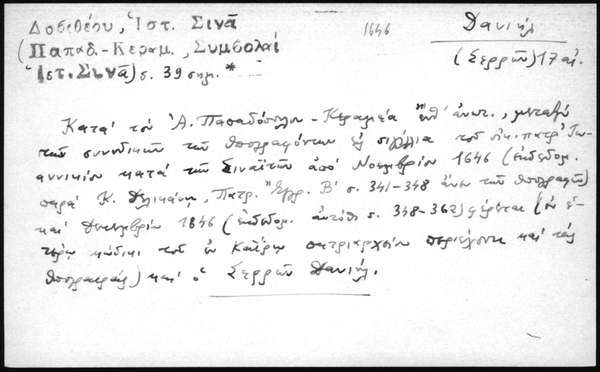 Δοσιθέου, Ἱστ. Σινᾶ
(Παπαδ.-Κεραμ., Συμβολαί
Ἱστ. Σινᾶ) σ. 39 σημ. *
1646
Δανιήλ
(Σερρῶν) 17 αἰ.
Κατά τόν Ἀ. Παπαδόπουλον-Κεραμέα ἔνθ' ἀνωτ., μεταξύ
τῶν συνοδικῶν τῶν ὑπογραφόντων εἰς σιγίλλια τοῦ οἰκ. πατρ. Ἰω-
αννικίου κατά τῶν Σιναϊτῶν ἀπό Νοεμβρίου 1646 (ἐκδεδομ.
παρά Κ. Δελικάνῃ, Πατρ. Ἔγγρ. Β' σ. 341-348 ἄνευ τῶν ὑπογραφῶν)
καί Δεκεμβρίου 1646 (ἐκδεδομ. αὐτόθι σ. 348-362) φέρεται (ἐν
κώδικι τοῦ ἐν Καΐρῳ πατριαρχείου περιέχοντι καί τάς
ὑπογραφάς) καί ὁ Σερρῶν Δανιήλ.